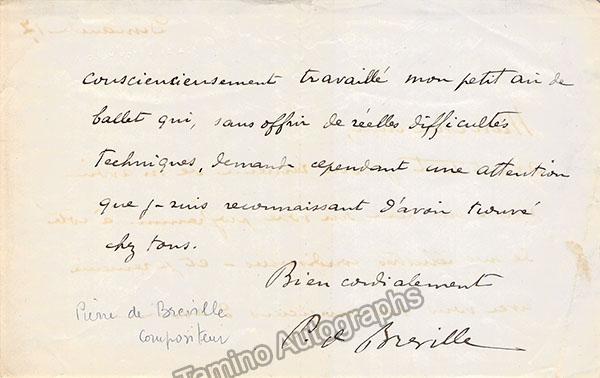 consciencieusement travaillé mon petit air de
ballet qui, sans offrir de réelles difficultés
techniques, demande cependant une attention
que je suis reconnaissant d'avoir trouvé
chez tous.
Bien cordialement
P. de Bréville
Pierre de Breville
Compositeur
Tamino Autographs